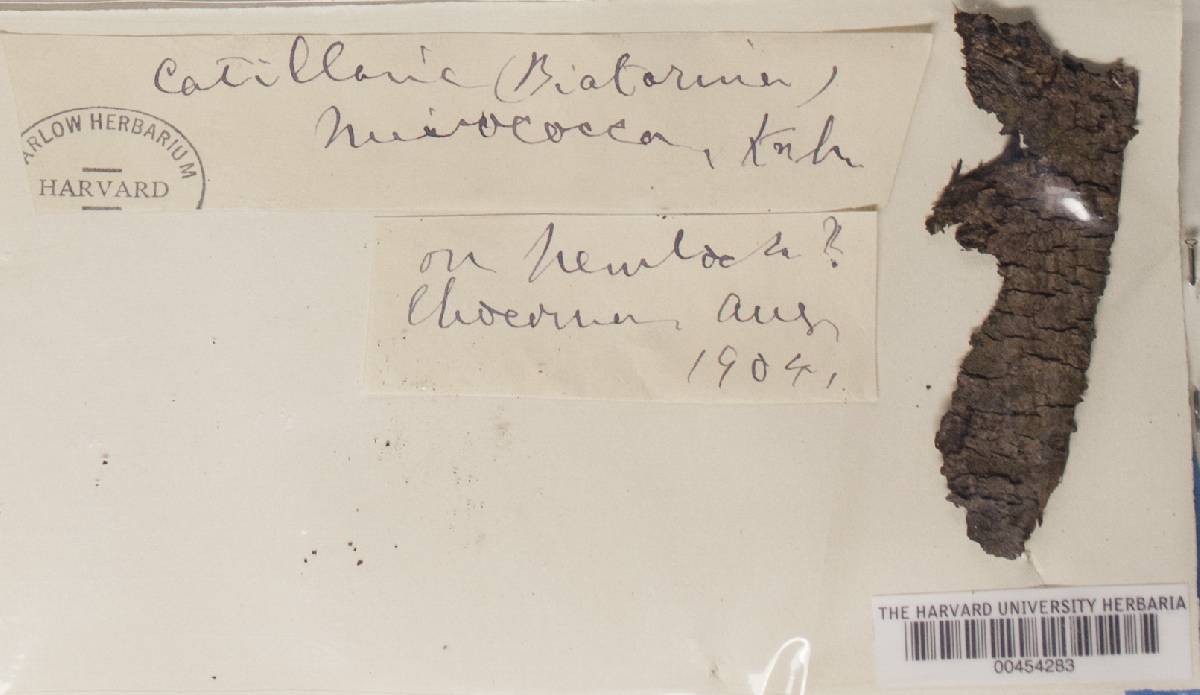 Catillaria (Biatorina)
micrococca, Krb.
ARLOW HERBARIUM
HARVARD
on hemlock?
Chocorua, Aug,
1904,
THE HARVARD UNIVERSITY HERBARIA
00454283